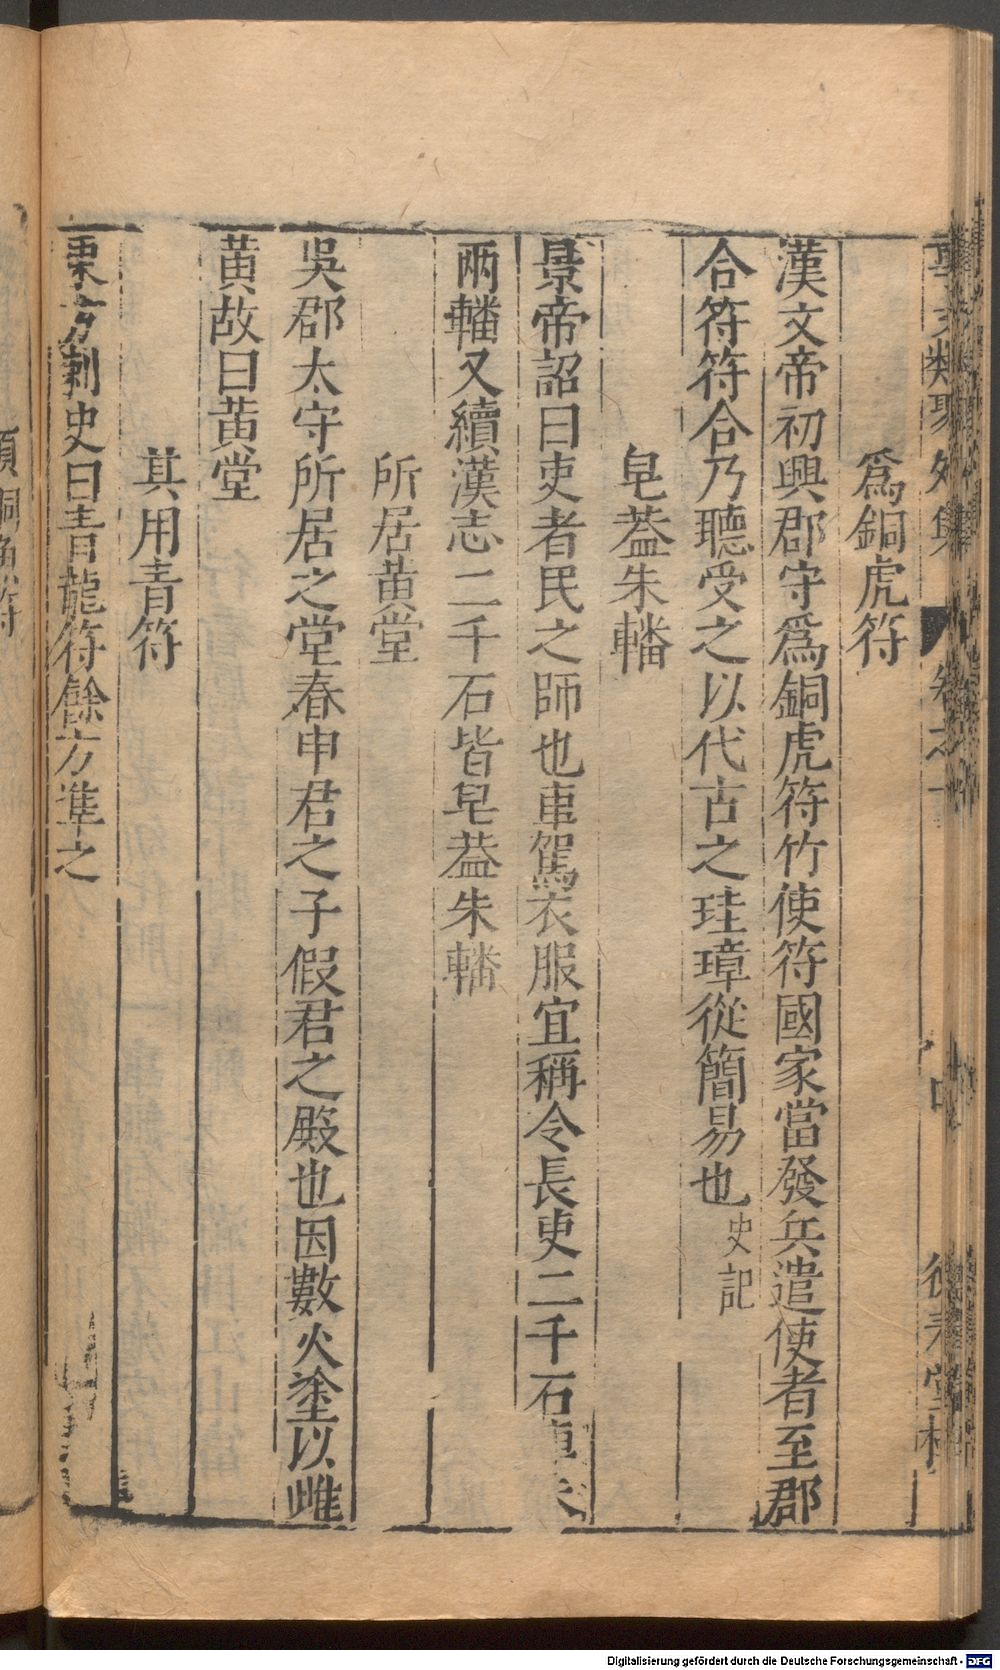 事文類聚外集 卷之十
爲銅虎符
漢文帝初興郡守爲銅虎符竹使符國家當發兵遣使者至郡
合符符合乃聽受之以代古之珪璋從簡易也史記
皂葢朱轓
景帝詔曰吏者民之師也車駕衣服宜稱令長吏二千石車朱
兩轓又續漢志二千石皆皂葢朱轓
所居黄堂
吳郡太守所居之堂春申君之子假君之殿也因數火塗以雌
黄故曰黄堂
其用青符
東方刺史曰青龍符餘方準之
Digitalisierung gefördert durch die Deutsche Forschungsgemeinschaft - DFG